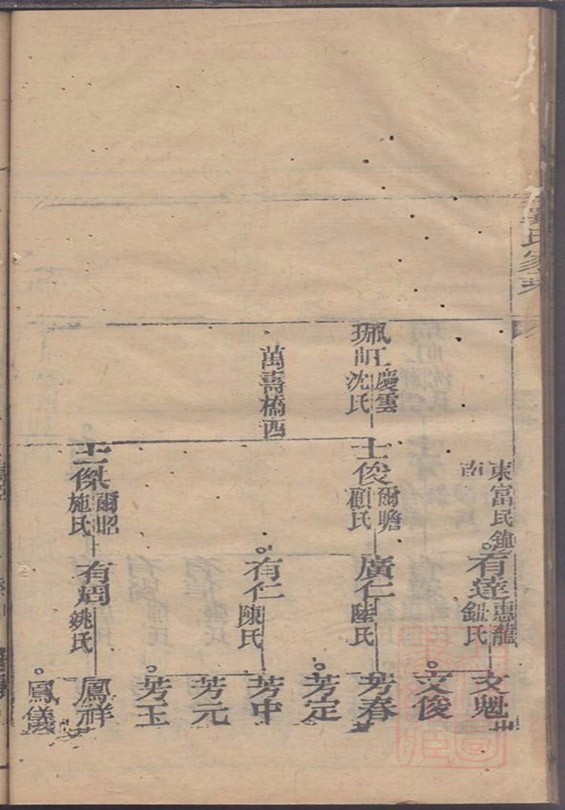 氏家
東富民鐘
南
有達
惠龍
鈕氏
文魁
文俊
珮
慶雲
沈氏
士俊
爾瞻
顧氏
廣仁
陸氏
芳春
芳定
萬壽橋西
有仁
陳氏
芳中
芳元
芳玉
士傑
爾昭
施氏
有
姚氏
鳳祥
鳳儀